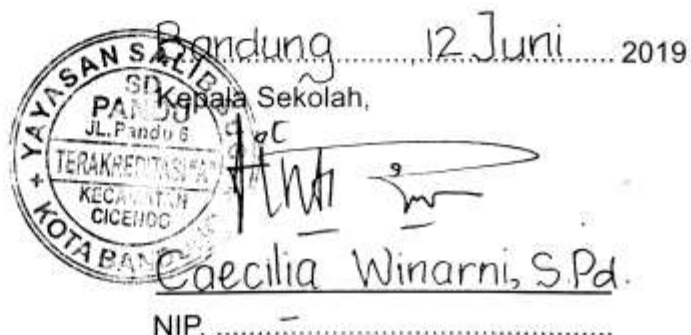 Bandung, 12 Juni 2019
Kepala Sekolah,
YAYASAN SALIB
SD
PANDU
JL. Pandu 6
TERAKREDITASI "A"
KECAMATAN
CICENDO
KOTA BANDUNG
Caecilia Winarni, S.Pd.
NIP. –